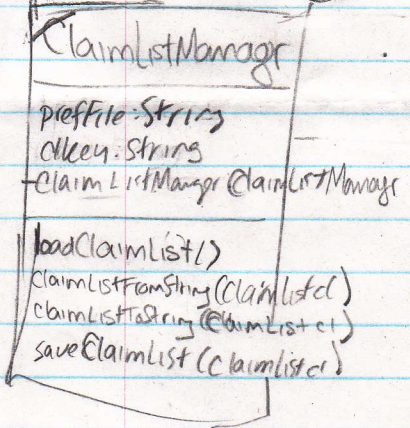 ClaimListManagr
prefFile:String
clkey:String
-ClaimListManager ClaimListManagr
loadClaimList()
ClaimListFromString(Claimlistcl)
ClaimListToString(Claimlist cl)
saveClaimList(Claimlistcl)